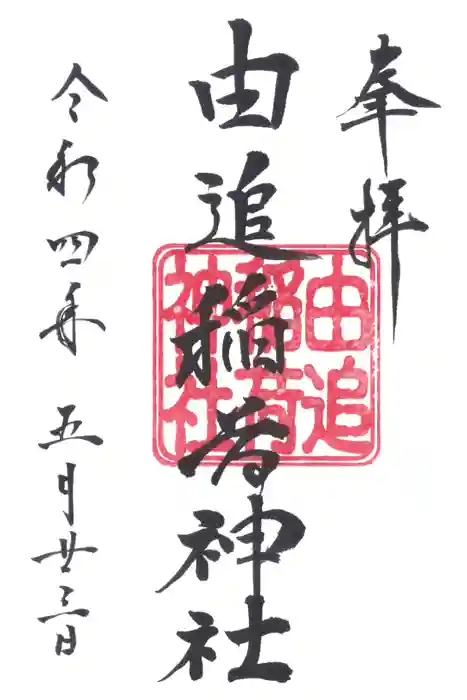 奉拝
由追稲荷神社
令和四年 五月廿三日
由追
稲荷
神社